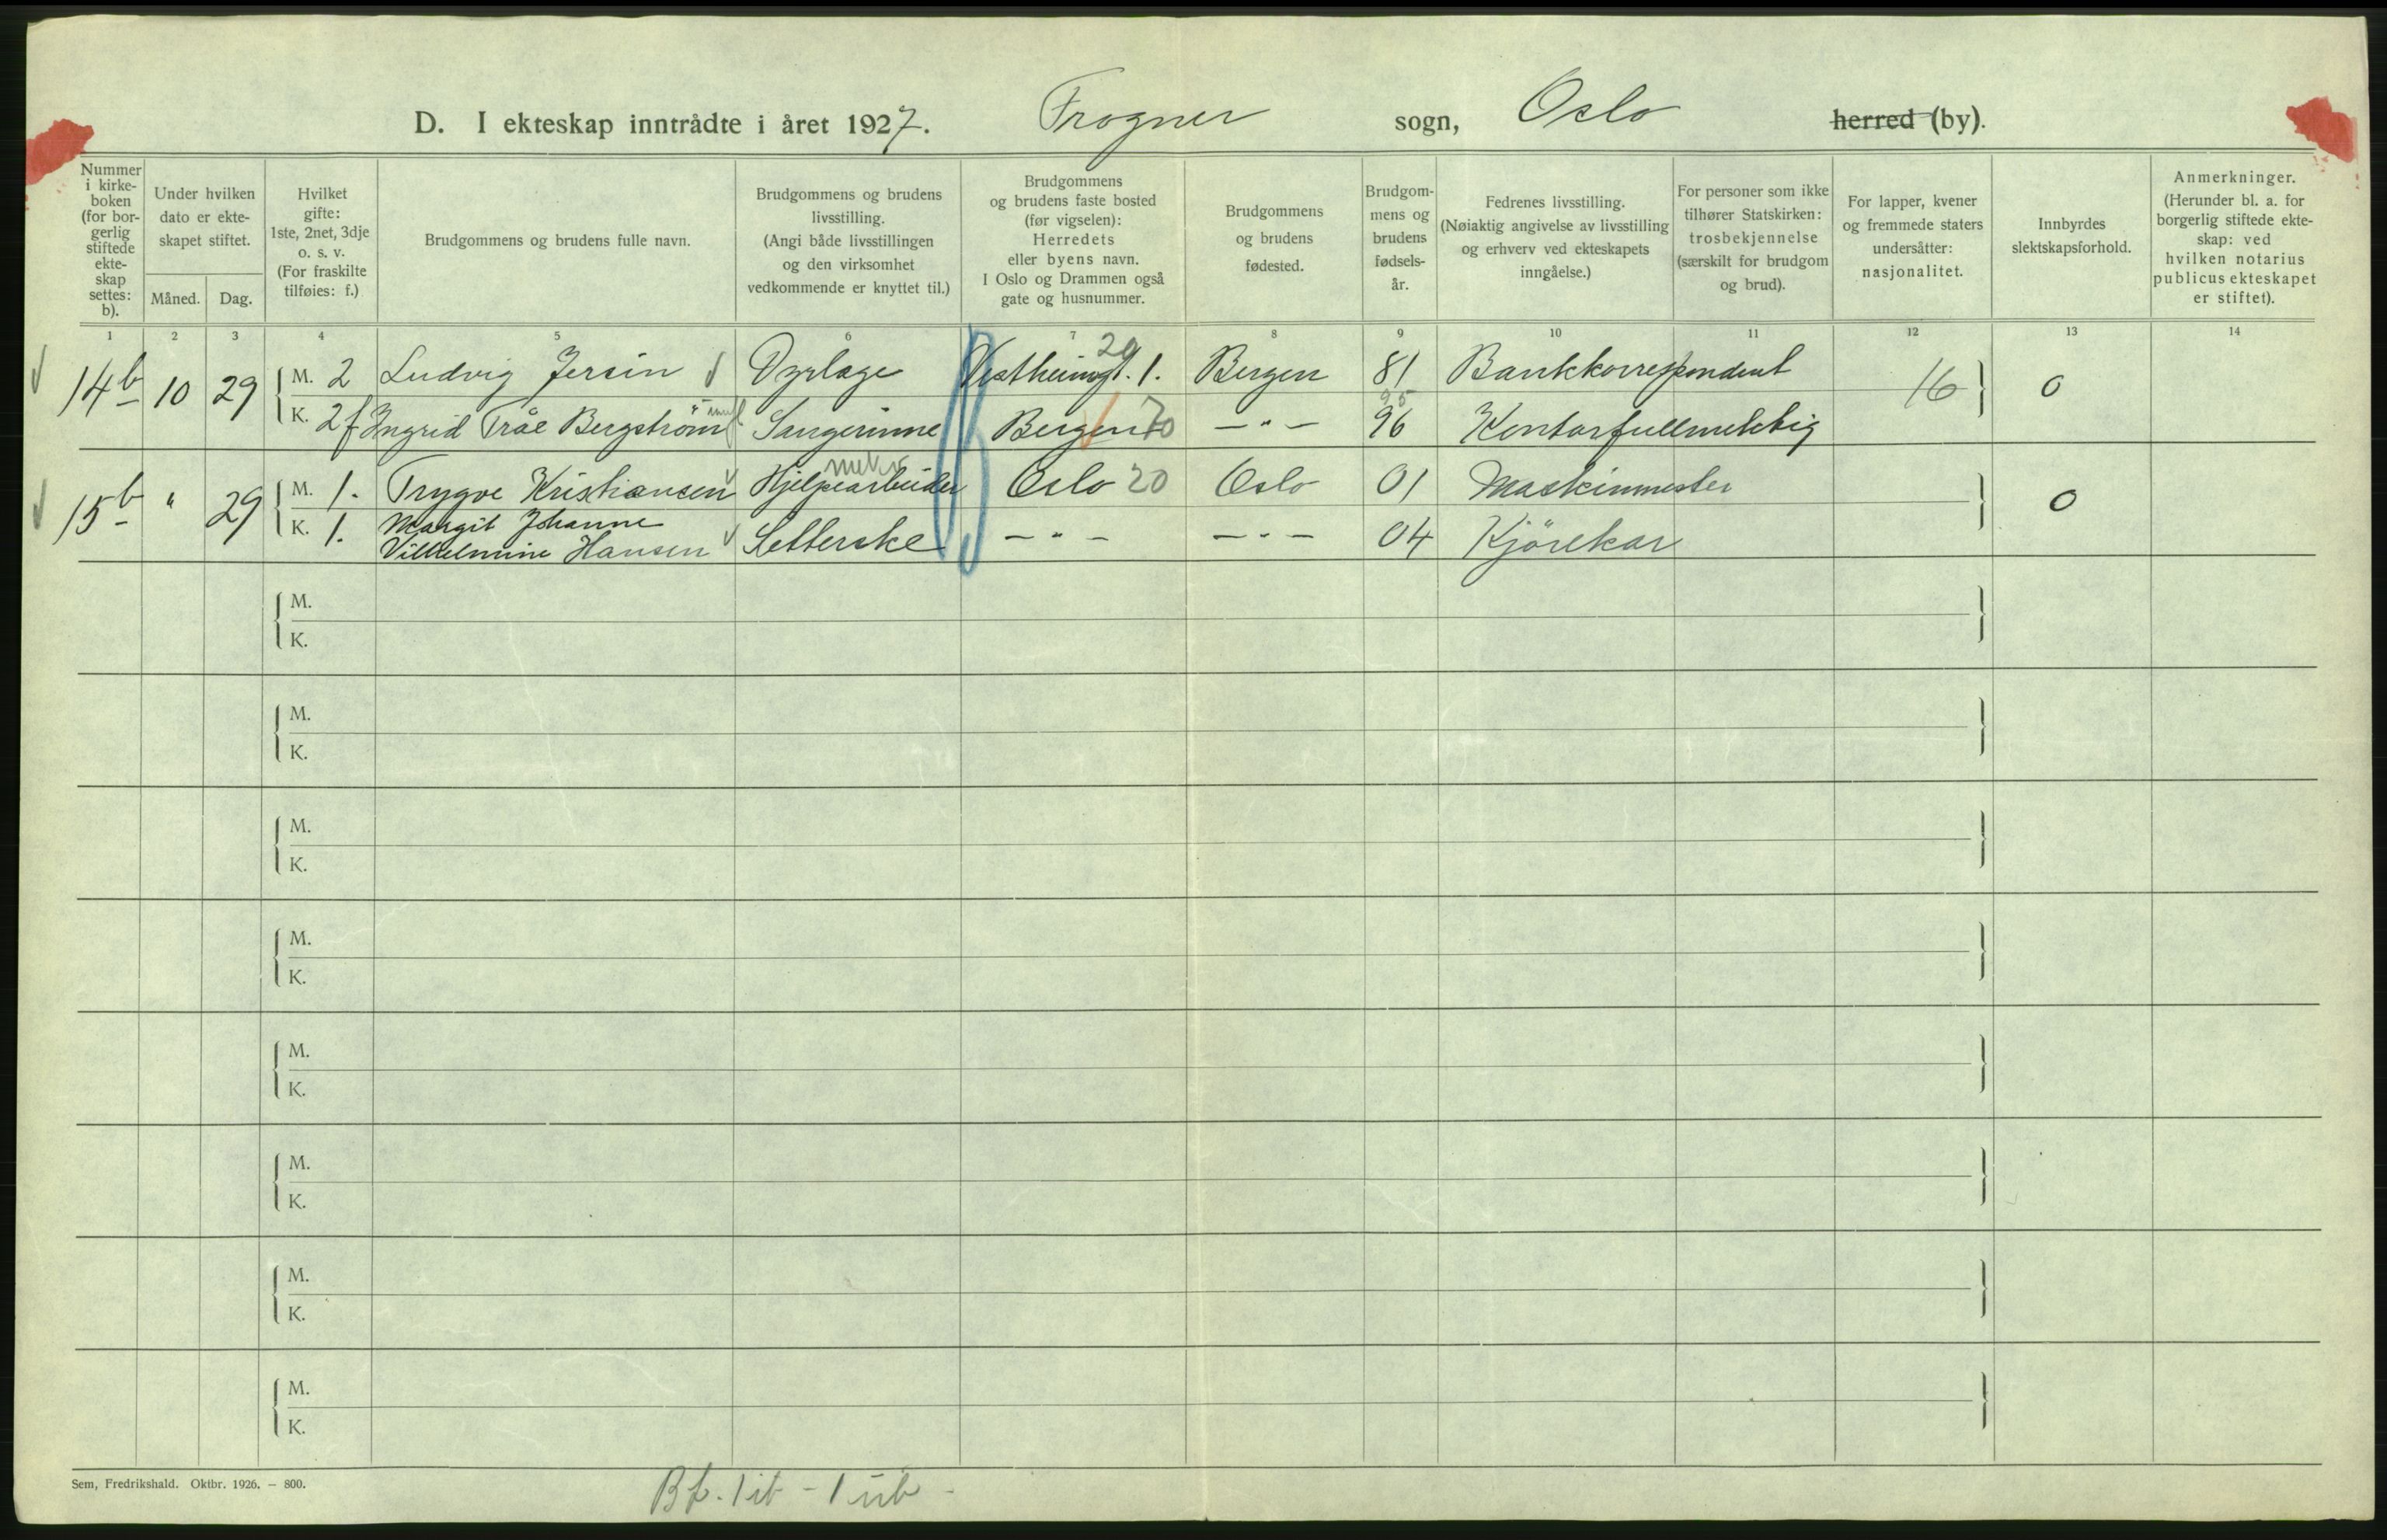 D. I ekteskap inntrådte i året 1927. Frogner sogn, Oslo herred (by).
Nummer
i kirke-
boken
(for bor-
gerlig
stiftede
ekte-
skap
settes:
b).
Under hvilken
dato er ekte-
skapet stiftet.
Måned.
Dag.
Hvilket
gifte:
1ste, 2net, 3dje
o. s. v.
(For fraskilte
tilføies: f.)
Brudgommens og brudens fulle navn.
Brudgommens og brudens
livsstilling.
(Angi både livsstillingen
og den virksomhet
vedkommende er knyttet til.)
Brudgommens
og brudens faste bosted
(før vigselen):
Herredets
eller byens navn.
I Oslo og Drammen også
gate og husnummer.
Brudgommens
og brudens
fødested.
Brudgom-
mens og
brudens
fødsels-
år.
Fedrenes livsstilling.
(Nøiaktig angivelse av livsstilling
og erhverv ved ekteskapets
inngåelse.)
For personer som ikke
tilhører Statskirken:
trosbekjennelse
(særskilt for brudgom
og brud).
For lapper, kvener
og fremmede staters
undersåtter:
nasjonalitet.
Innbyrdes
slektskapsforhold.
Anmerkninger.
(Herunder bl. a. for
borgerlig stiftede ekte-
skap: ved
hvilken notarius
publicus ekteskapet
er stiftet).
1 2 3 4 5 6 7 8 9 10 11 12 13 14
20
14b 10 29 M. 2 Ludvig Jersin Dyrlæge Vestheimgt. 1. Bergen 81 Bankkorrespondent 16 0
95
K. 2f Ingrid Tråe Bergström Sangerinne Bergen 70 — " — 96 Kontorfullmektig
15b " 29 M. 1. Trygve Kristiansen Hjelpearbeider Oslo 20 Oslo 01 Maskinmester 0
K. 1. Margit Johanne
Vilhelmine Hansen Setterske — " — — " — 04 Kjörekar
M.
K.
M.
K.
M.
K.
M.
K.
M.
K.
M.
K.
M.
K.
M.
K.
Sem, Fredrikshald. Oktbr. 1926. — 800.